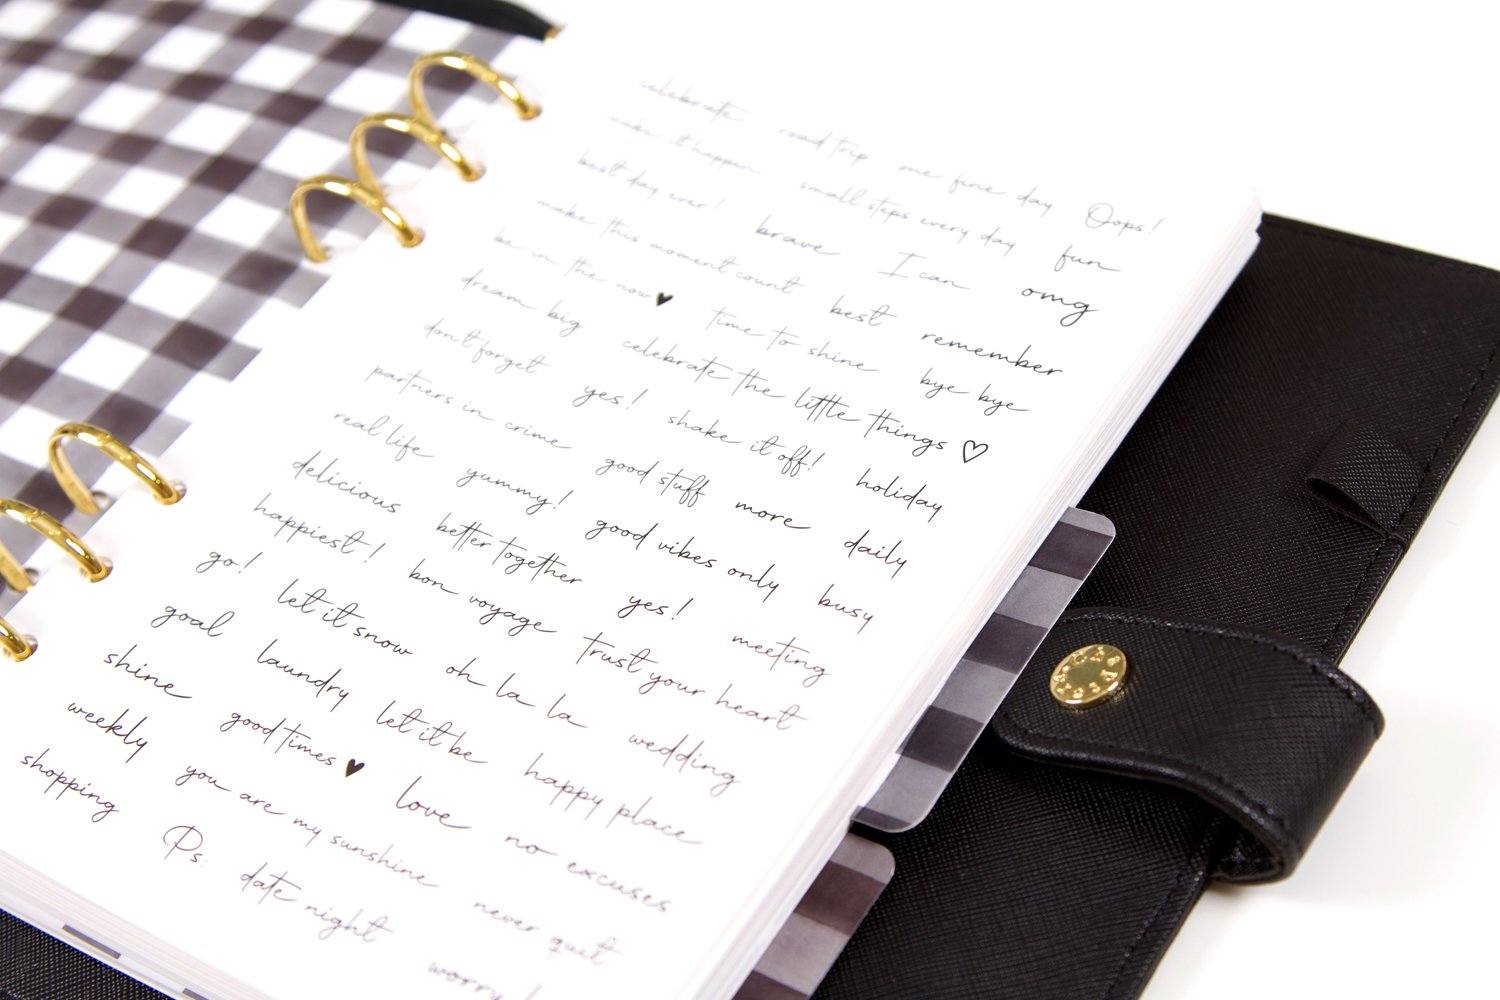 celebrate road trip one fine day Oops!
make it happen small steps every day fun
best day ever! brave I can omg
make this moment count best remember
be in the now ♥ time to shine bye bye
dream big celebrate the little things ♡
don't forget yes! shake it off! holiday
partners in crime good stuff more daily
real life yummy! good vibes only busy
delicious better together yes! meeting
happiest! bon voyage trust your heart
go! let it snow oh la la wedding
goal laundry let it be happy place
shine good times ♥ love no excuses
weekly you are my sunshine never quit
shopping Ps: date night